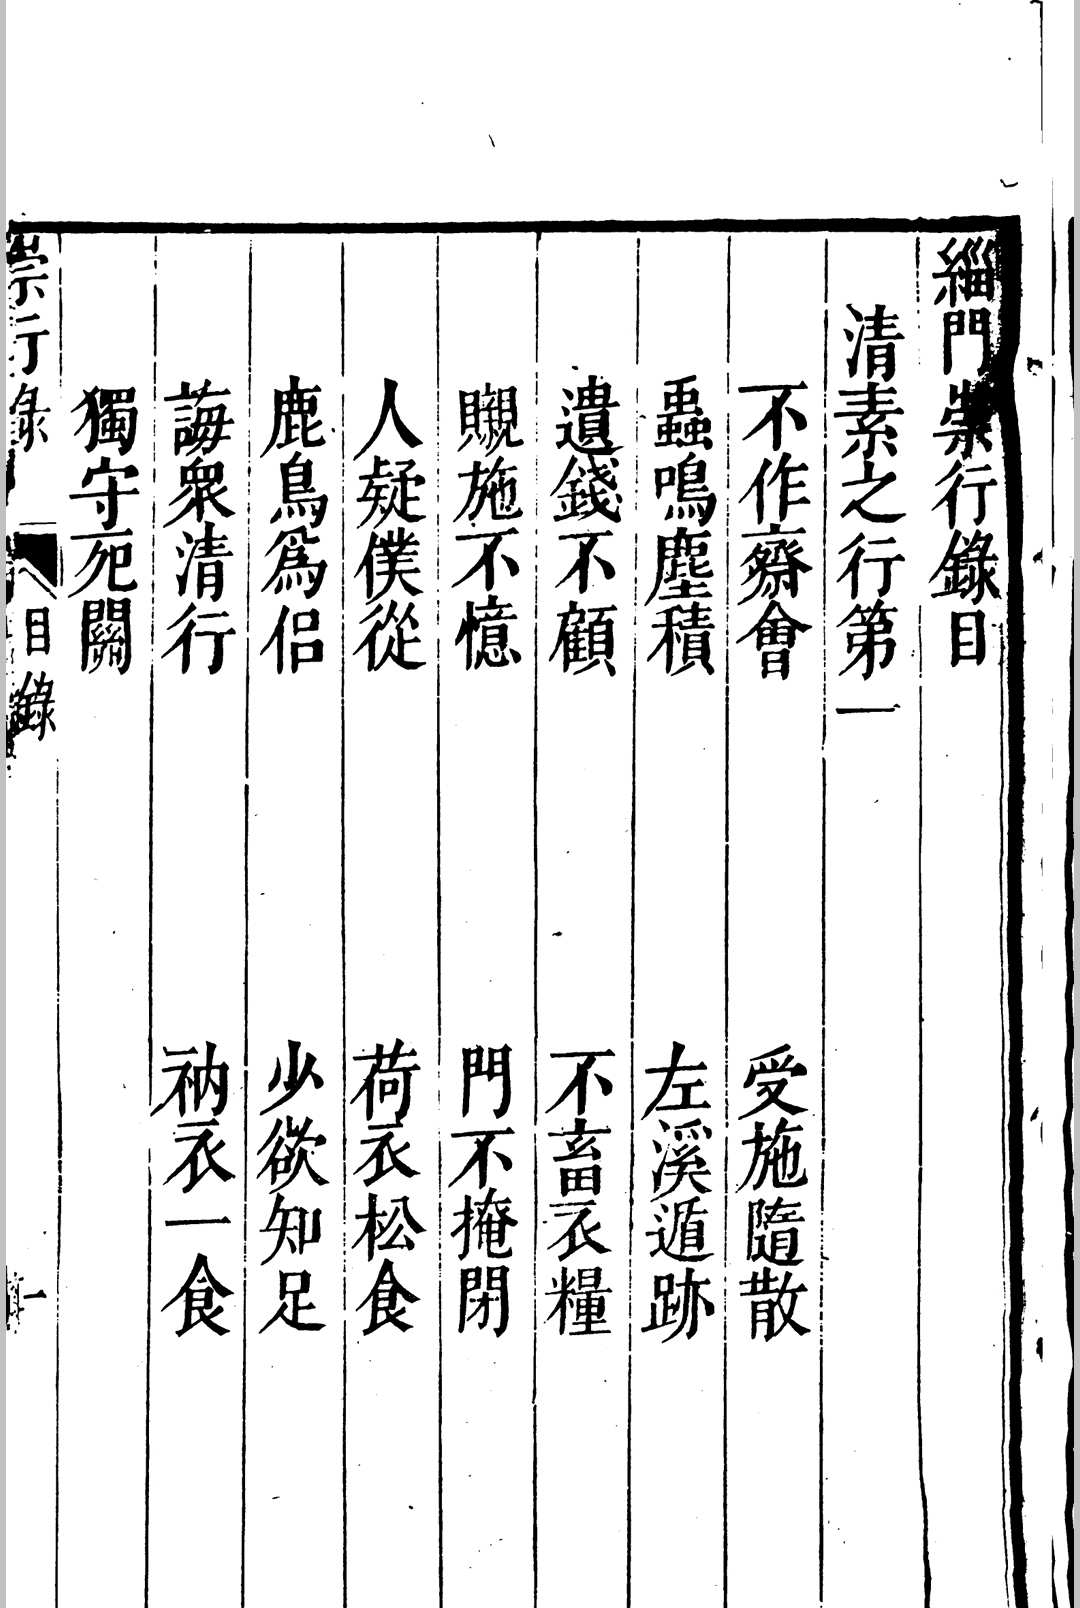 緇門崇行錄目
清素之行第一
不作齋會 受施隨散
蟲鳴塵積 左溪遁跡
遺錢不顧 不畜衣糧
瞡施不憶 門不掩閉
人疑僕從 荷衣松食
鹿鳥為侶 少欲知足
誨眾清行 衲衣一食
獨守死關
崇行錄 目錄 一